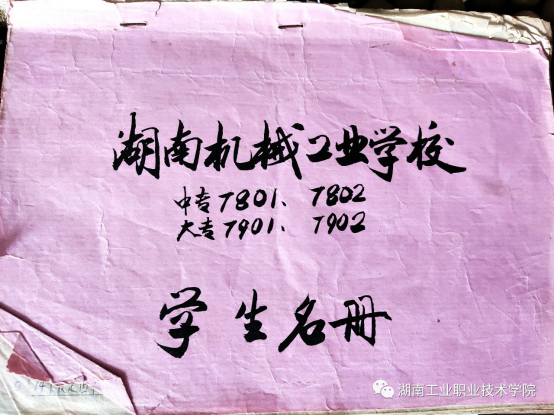 湖南机械工业学校
中专7801、7802
大专7901、7902
学生名册
湖南工业职业技术学院